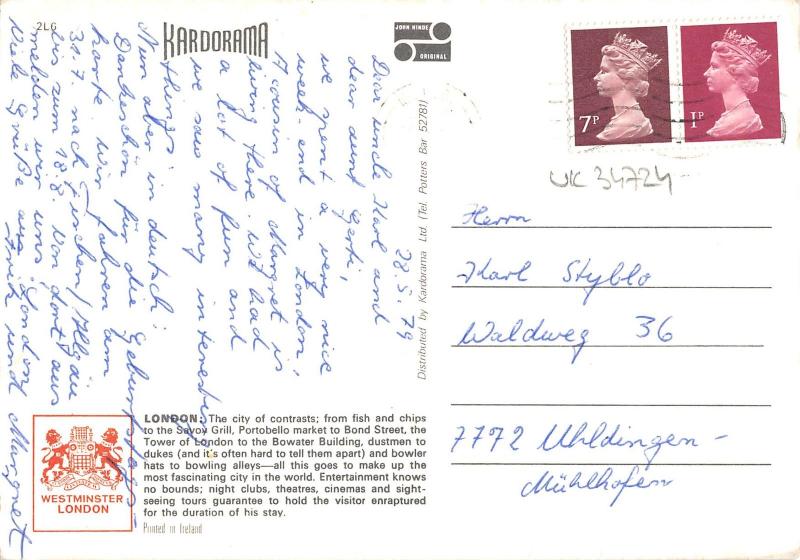 2LG
KARDORAMA
JOHN HINDE
ORIGINAL
7P
1P
UK 34724
28.5.79
Dear uncle Karl and
dear aunt Gerti,
we spent a very nice
week-end in London,
A cousin of Margret is
living there. We had
a lot of fun and
we saw many interesting
things.
Nun aber in deutsch:
Dankeschön für die Geburtstags-
karte. Wir fahren am
31.7. nach Fischen/Allgäu
bis zum 18.8. Von dort aus
melden wir uns.
Viele Grüße aus London
Fritz und Margret
Distributed by Kardorama Ltd. (Tel. Potters Bar 52781)
Herrn
Karl Styblo
Waldweg 36
7772 Uhldingen-
Mühlhofen
LONDON: The city of contrasts; from fish and chips
to the Savoy Grill, Portobello market to Bond Street, the
Tower of London to the Bowater Building, dustmen to
dukes (and it's often hard to tell them apart) and bowler
hats to bowling alleys—all this goes to make up the
most fascinating city in the world. Entertainment knows
no bounds; night clubs, theatres, cinemas and sight-
seeing tours guarantee to hold the visitor enraptured
for the duration of his stay.
Printed in Ireland
WESTMINSTER
LONDON